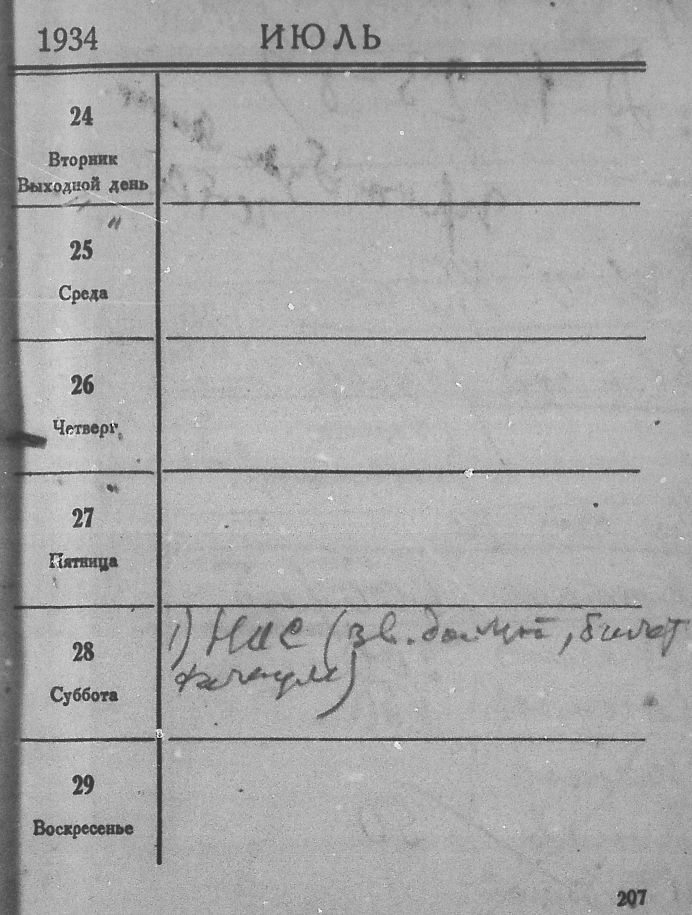 1934 ИЮЛЬ
24
Вторник
Выходной день
25
Среда
26
Четверг
27
Пятница
28
Суббота
1) НИС (зв. , билет
29
Воскресенье
207